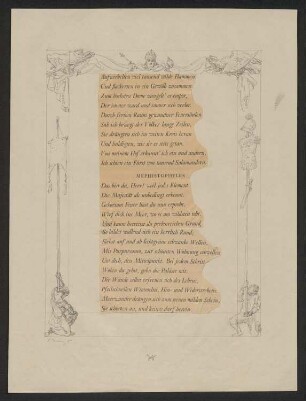 Aufwirbelten viel tausend wilde Flammen
Und flackerten in ein Gewölb zusammen.
Zum höchsten Dome züngelt' es empor,
Der immer ward und immer sich verlor.
Durch fernen Raum gewundner Feuersäulen
Sah ich bewegt der Völker lange Zeilen,
Sie drängten sich im weiten Kreis heran
Und huldigten, wie sie es stets getan.
Von meinem Hof erkannt' ich ein und andern,
Ich schien ein Fürst von tausend Salamandern.
MEPHISTOPHELES
Das bist du, Herr! weil jedes Element
Die Majestät als unbedingt erkennt.
Gehorsam Feuer hast du nun erprobt;
Wirf dich ins Meer, wo es am wildsten tobt,
Und kaum betrittst du perlenreichen Grund,
So bildet wallend sich ein herrlich Rund;
Siehst auf und ab lichtgrüne schwanke Wellen,
Mit Purpursaum, zur schönsten Wohnung schwellen
Um dich, den Mittelpunkt. Bei jedem Schritt,
Wohin du gehst, gehn die Paläste mit.
Die Wände selbst erfreuen sich des Lebens,
Pfeilschnellen Wimmelns, Hin- und Widerstrebens.
Meerwunder drängen sich zum neuen milden Schein,
Sie schießen an, und keines darf herein.